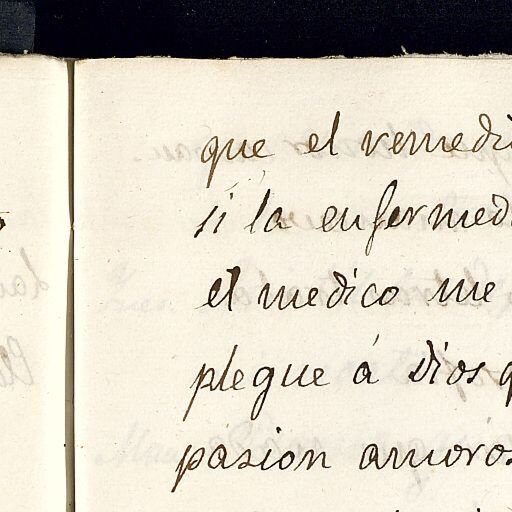 que el remedi
si la enfermed
el medico me
plegue á Dios q
pasion amoros